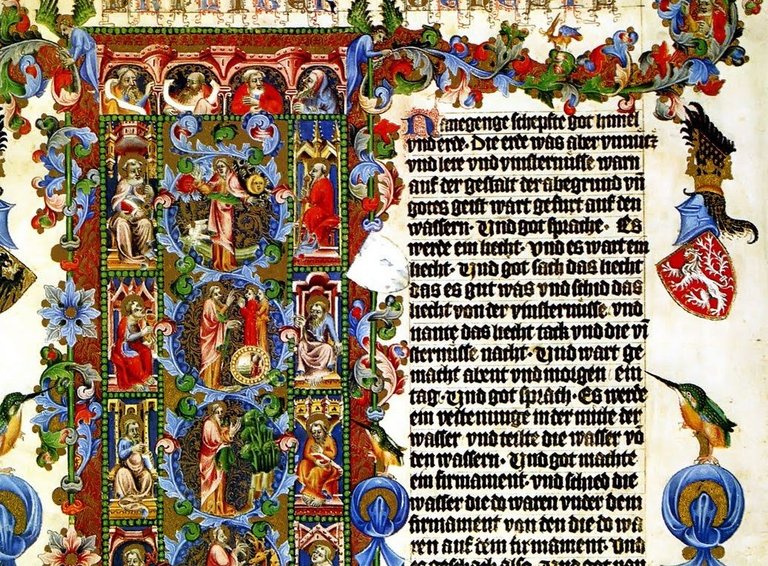 Nanegenge schepfte got himel
vnd erde. Die erde was aber vnnutz
vnd lere vnd vinsternusse warn
auf der gestalt der abegrund vn̄
gotes geist wart gefurt auf den
wassern. Vnd got sprache. Es
werde ein liecht. vnd es wart ein
liecht. Vnd got sach das liecht
das es gut was vnd schid das
liecht von der vinsternusse. vnd
nante das liecht tack vnd die vī
sternusse nacht. Vnd wart ge
macht abent vnd morgen ein
tag. Vnd got sprach. Es werde
ein vestenunge in der mitte der
wasser vnd teilte die wasser vō
den wassern. Vnd got machte
ein firmament. vnd schied die
wasser die do waren vnder dem
firmament von den die do wa
ren auf dem firmament. vnd
es geschach also. Vnd got nan